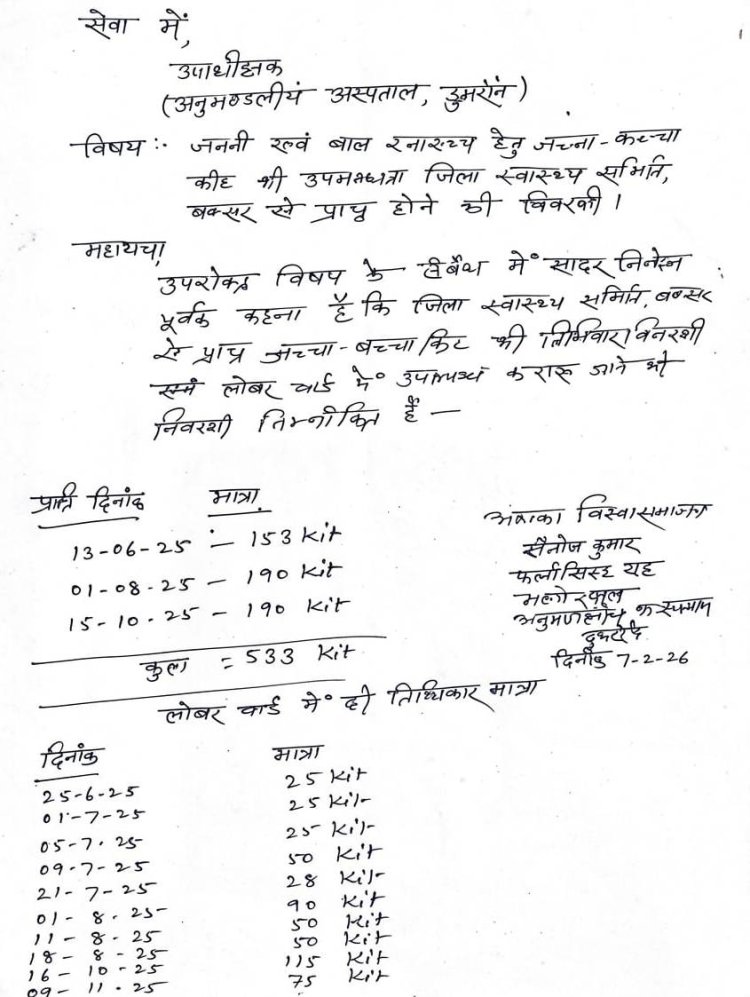 सेवा में,
उपाधीक्षक
(अनुमण्डलीय अस्पताल, डुमराँव)
विषय :- जननी एवं बाल स्वास्थ्य हेतु जच्चा-बच्चा
कीट की उपलब्धता जिला स्वास्थ्य समिति,
बक्सर से प्राप्त होने की विवरणी।
महाशय,
उपरोक्त विषय के संबंध में सादर निवेदन
पूर्वक कहना है कि जिला स्वास्थ्य समिति, बक्सर
से प्राप्त जच्चा-बच्चा किट की तिथिवार विवरणी
एवं लेबर वार्ड में उपलब्ध कराए जाने की
विवरणी निम्नांकित है —
प्राप्ति दिनांक मात्रा
13-06-25 :- 153 Kit
01-08-25 - 190 Kit
15-10-25 - 190 Kit
कुल = 533 Kit
आपका विश्वासभाजन
सैनोज कुमार
फर्मासिस्ट
अनुमण्डलीय अस्पताल
डुमराँव
दिनांक 7-2-26
लेबर वार्ड में दी तिथिवार मात्रा
दिनांक मात्रा
25-6-25 25 Kit
01-7-25 25 Kit
05-7-25 25 Kit
09-7-25 50 Kit
21-7-25 28 Kit
01-8-25 90 Kit
11-8-25 50 Kit
18-8-25 50 Kit
16-10-25 115 Kit
09-11-25 75 Kit